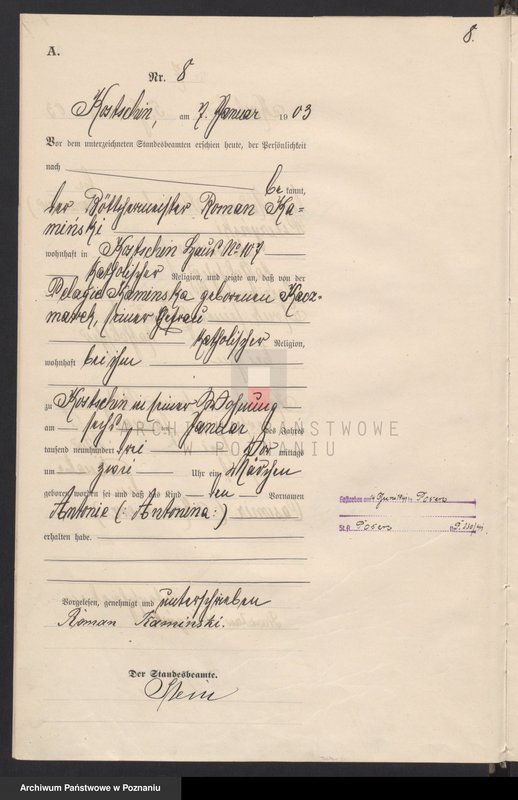 8.
A.
Nr. 8
Kostschin, am 7. Januar 1903
Vor dem unterzeichneten Standesbeamten erschien heute, der Persönlichkeit
nach be kannt,
der Böttchermeister Roman Ka=
miński
wohnhaft in Kostschin Haus No 107
katholischer Religion, und zeigte an, daß von der
Pelagia Kaminska geborenen Kacz=
marek, seiner Ehefrau
katholischer Religion,
wohnhaft bei ihm
zu Kostschin in seiner Wohnung
am sechsten Januar des Jahres
tausend neunhundert drei Vor mittags
um zwei Uhr ein Mädchen
geboren worden sei und daß das Kind den Vornamen
Antonie (: Antonina :)
erhalten habe.
Gestorben am in Posen
St.A. Posen
Vorgelesen, genehmigt und unterschrieben
Roman Kaminski.
Der Standesbeamte.
Stein
ARCHIWUM PAŃSTWOWE
W POZNANIU
Archiwum Państwowe w Poznaniu